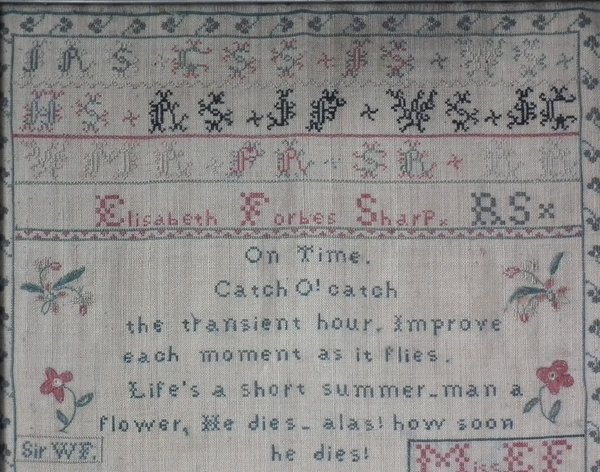 IAS · ES S · IS · WS ·
HS · AS · JP · WS · JC
WMR · PR · SR · RR
Elisabeth Forbes Sharp. RS
On Time.
Catch O! catch
the transient hour. Improve
each moment as it flies.
Life's a short summer - man a
flower, He dies - alas! how soon
he dies!
Sir WF.
Miss EF